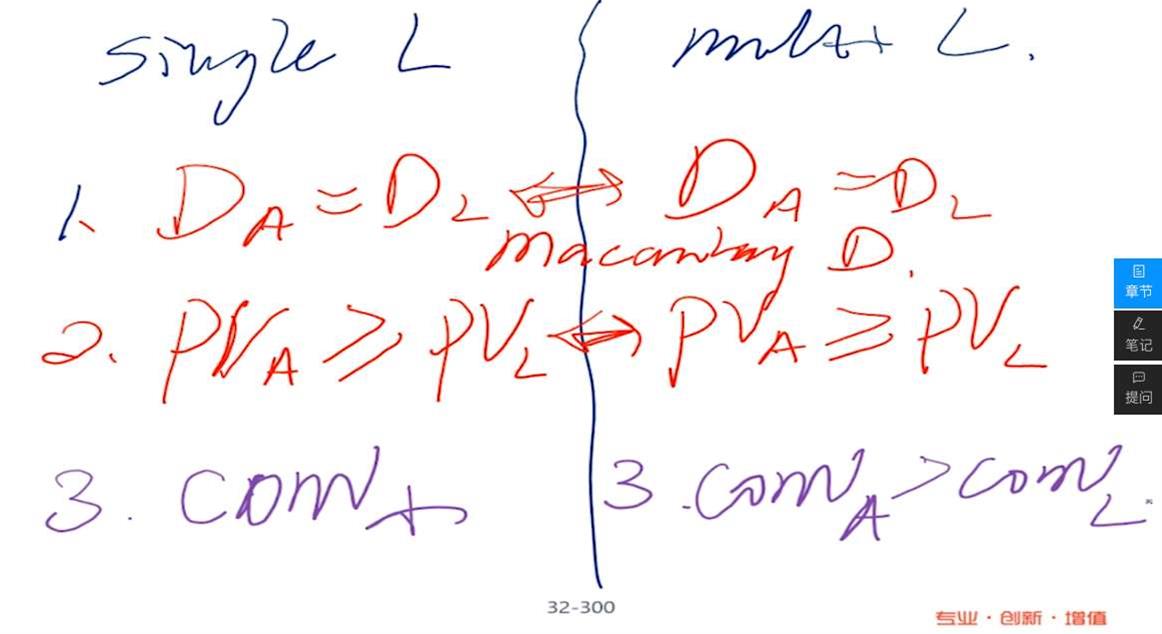 single L
multi L.
1. D_A = D_L ↔ D_A = D_L
macaulay D.
2. PV_A ≥ PV_L ↔ PV_A ≥ PV_L
3. conv ↓
3. conv_A > conv_L.
章节
笔记
提问
32-300
专业·创新·增值